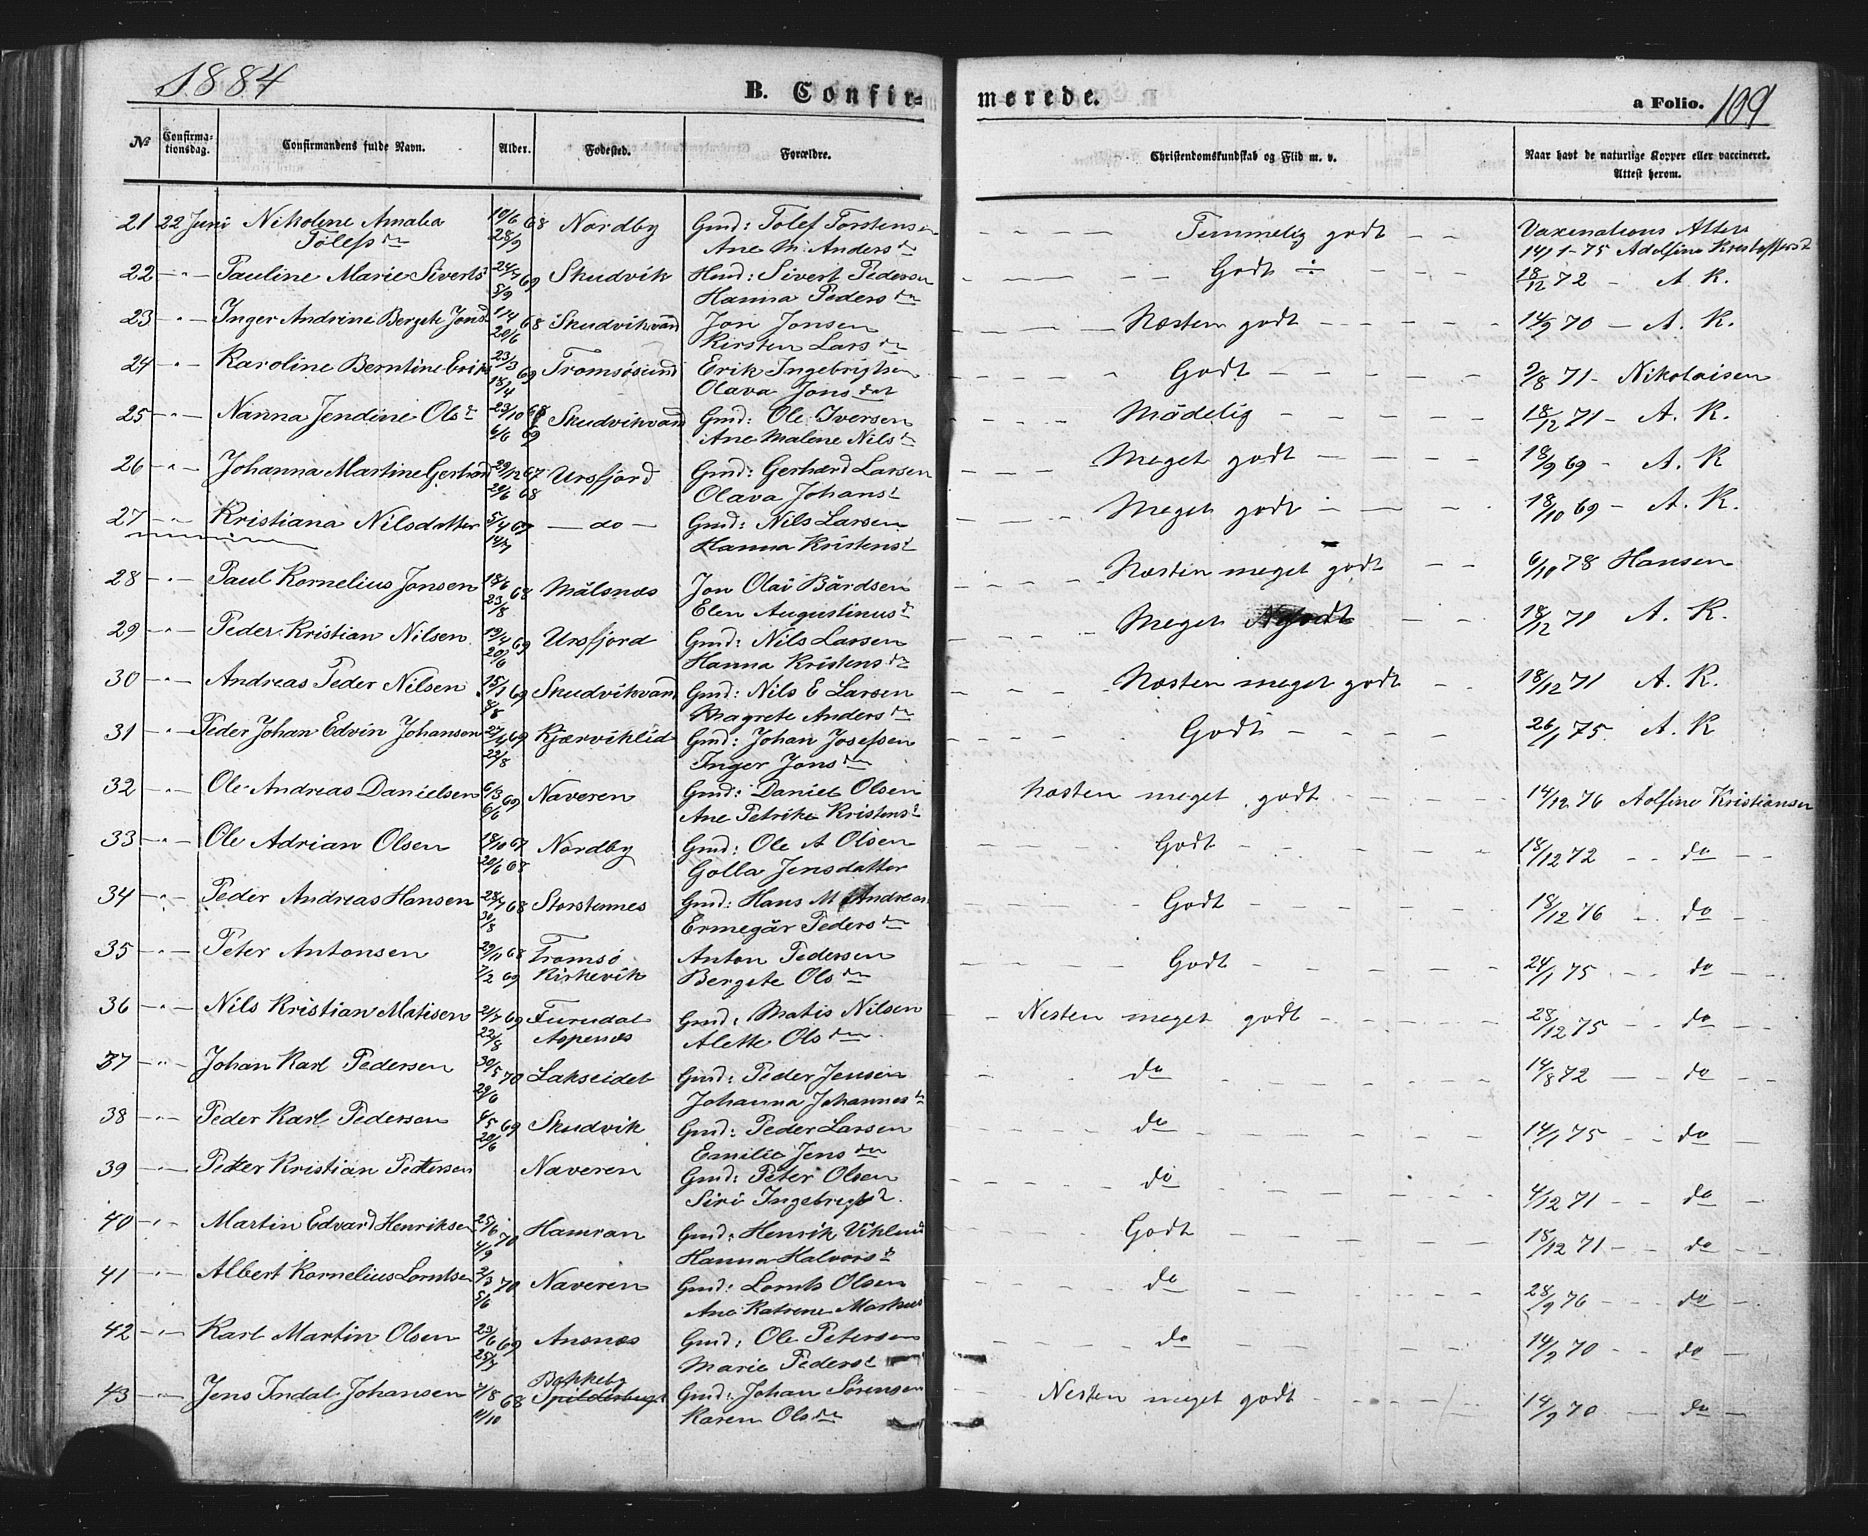 1884 B. Confir- merede. a Folio. 109
No Confirma-tionsdag. Confirmandens fulde Navn. Alder. Fødested. Forældre. Christendomskundskab og Flid m. v. Naar havt de naturlige Kopper eller vaccineret. Attest herom.
21 22 Juni Nikoline Amalia 10/6 68 Nordby Gmd: Tolef Torstens Temmelig godt Vaxinations Attest
Tolefs dtr 28/9 Ane M. Anders dtr 14/1-75 Adolfine Kristoffers
22 -"- Pauline Marie Siverts 24/7 69 Skudvik Hmd: Sivert Pedersen Godt 18/12 72 - A. K.
5/9 Hanna Peders dtr
23 -"- Inger Andrine Bergete Jons 1/4 68 Skudvikvand Jon Jonsen Næsten godt 14/9 70 - A. K.
20/6 Kirsten Lars dtr
24 -"- Karoline Berntine Eriks 23/3 69 Tromsøsund Erik Ingebrigtsen Godt 2/8 71 - Nikolaisen
18/4 Olava Jons dat
25 -"- Nanna Jendine Ols 23/10 68 Skudvikvand Gmd: Ole Iversen Mådelig 18/12 71 - A. K.
6/6 69 Ane Malene Nils dtr
26 -"- Johanna Martine Gerhard 29/12 67 Ursfjord Gmd: Gerhard Larsen Meget godt 18/9 69 - A. K
20/6 68 Olava Johans
27 -"- Kristiana Nilsdatter 5/4 67 - do - Gmd: Nils Larsen Meget godt 18/10 69 - A. K.
14/7 Hanna Kristens
28 -"- Paul Kornelius Jonsen 18/6 68 Målsnæs Jon Olai Bårdsen Næsten meget godt 6/10 78 Hansen
23/8 Elen Augustinus
29 -"- Peder Kristian Nilsen 19/4 69 Ursfjord Gmd: Nils Larsen Meget godt 18/12 71 A. K.
20/6 Hanna Kristens dtr
30 -"- Andreas Peder Nilsen 15/1 69 Skudvikvand Gmd: Nils E Larsen Næsten meget godt 18/12 71 A. K.
8/8 Magrete Anders dtr
31 -"- Peder Johan Edvin Johansen 69 Kjærviklid Gmd: Johan Josefsen Godt 26/1 75 A. K
22/8 Inger Jons dtr
32 -"- Ole Andreas Danielsen 6/3 69 Naveren Gmd: Daniel Olsen Næsten meget godt 14/12 76 Adfine Kristiansen
6/6 Ane Petrike Kristens
33 -"- Ole Adrian Olsen 18/10 67 Nordby Gmd: Ole A Olsen Godt 18/12 72 - do -
20/6 68 Golla Jensdatter
34 -"- Peder Andreas Hansen 28/7 68 Storstennes Gmd: Hans M Andreas Godt 18/12 76 - do -
Ermegår Peders dtr
35 -"- Peter Antonsen 29/11 68 Tromsø Anton Pedersen Godt 24/1 75 - do
7/2 69 Kiskevik Bergete Ols dtr
36 -"- Nils Kristian Matisen 2/7 69 Furudal Gmd: Matis Nilsen Nesten meget godt 28/12 75 - do
22/8 Aspenæs Alette Ols dtr
37 -"- Johan Karl Pedersen 30/5 70 Lakseidet Gmd: Peder Jensen do 14/8 72 - do
29/6 Johanna Johannes
38 -"- Peder Karl Pedersen 4/5 69 Skudvik Gmd: Peder Larsen do 14/1 75 - do -
20/6 Emilie Jens dtr
39 -"- Petter Kristian Pettersen Naveren Gmd: Peter Olsen do 4/12 71 - do
Siri Ingebrigts
40 -"- Martin Edvard Henriksen 25/6 70 Hamran Gmd: Henrik Viklund Godt 18/12 71 - do
4/9 Hanna Halvors
41 -"- Albert Kornelius Lorntsen 2/3 70 Naveren Gmd: Lornts Olsen do 28/9 76 - do
5/6 Ane Katrene Markus
42 -"- Karl Martin Olsen 23/6 69 Ansnæs Gmd: Ole Petersen do 14/9 70 - do
25/7 Marie Peders
43 -"- Jens Indal Johansen 7/8 68 Bakkeby Gmd: Johan Sørensen Nesten meget godt 14/9 70 - do -
11/10 Spildrebugt Karen Ols dtr